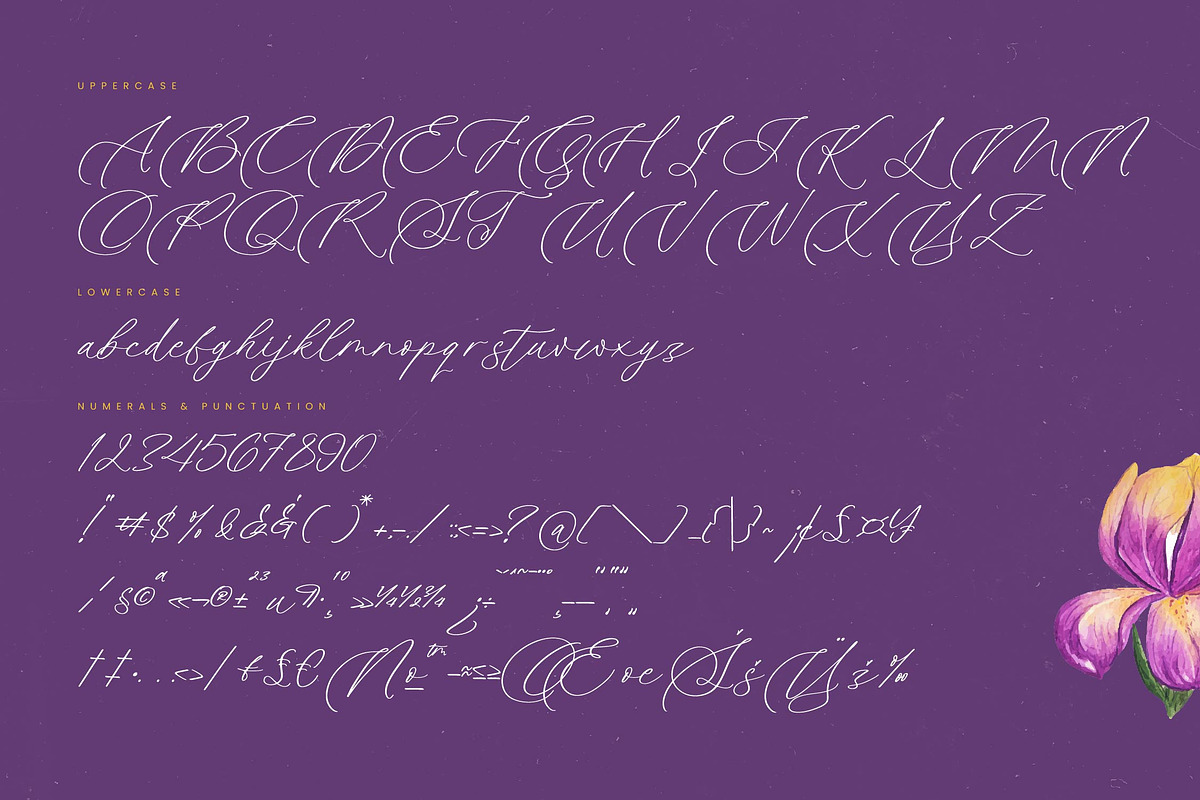 UPPERCASE
ABCDEFGHIJKLMN
OPQRSTUVWXYZ
LOWERCASE
abcdefghijklmnopqrstuvwxyz
NUMERALS & PUNCTUATION
1234567890
! " # $ % & ( ) * + , - . / : ; < = > ? @ [ \ ] _ { | } ~ ¡ ¢ £ ¤ ¥
¦ § © ª « ¬ ® ± 2 3 µ ¶ · ¸ 1 º » ¼ ½ ¾ ¿ ÷
† ‡ • . . . < > / £ € № ™ − ≈ ≤ ≥ Œ œ Š š Ÿ ž ‰